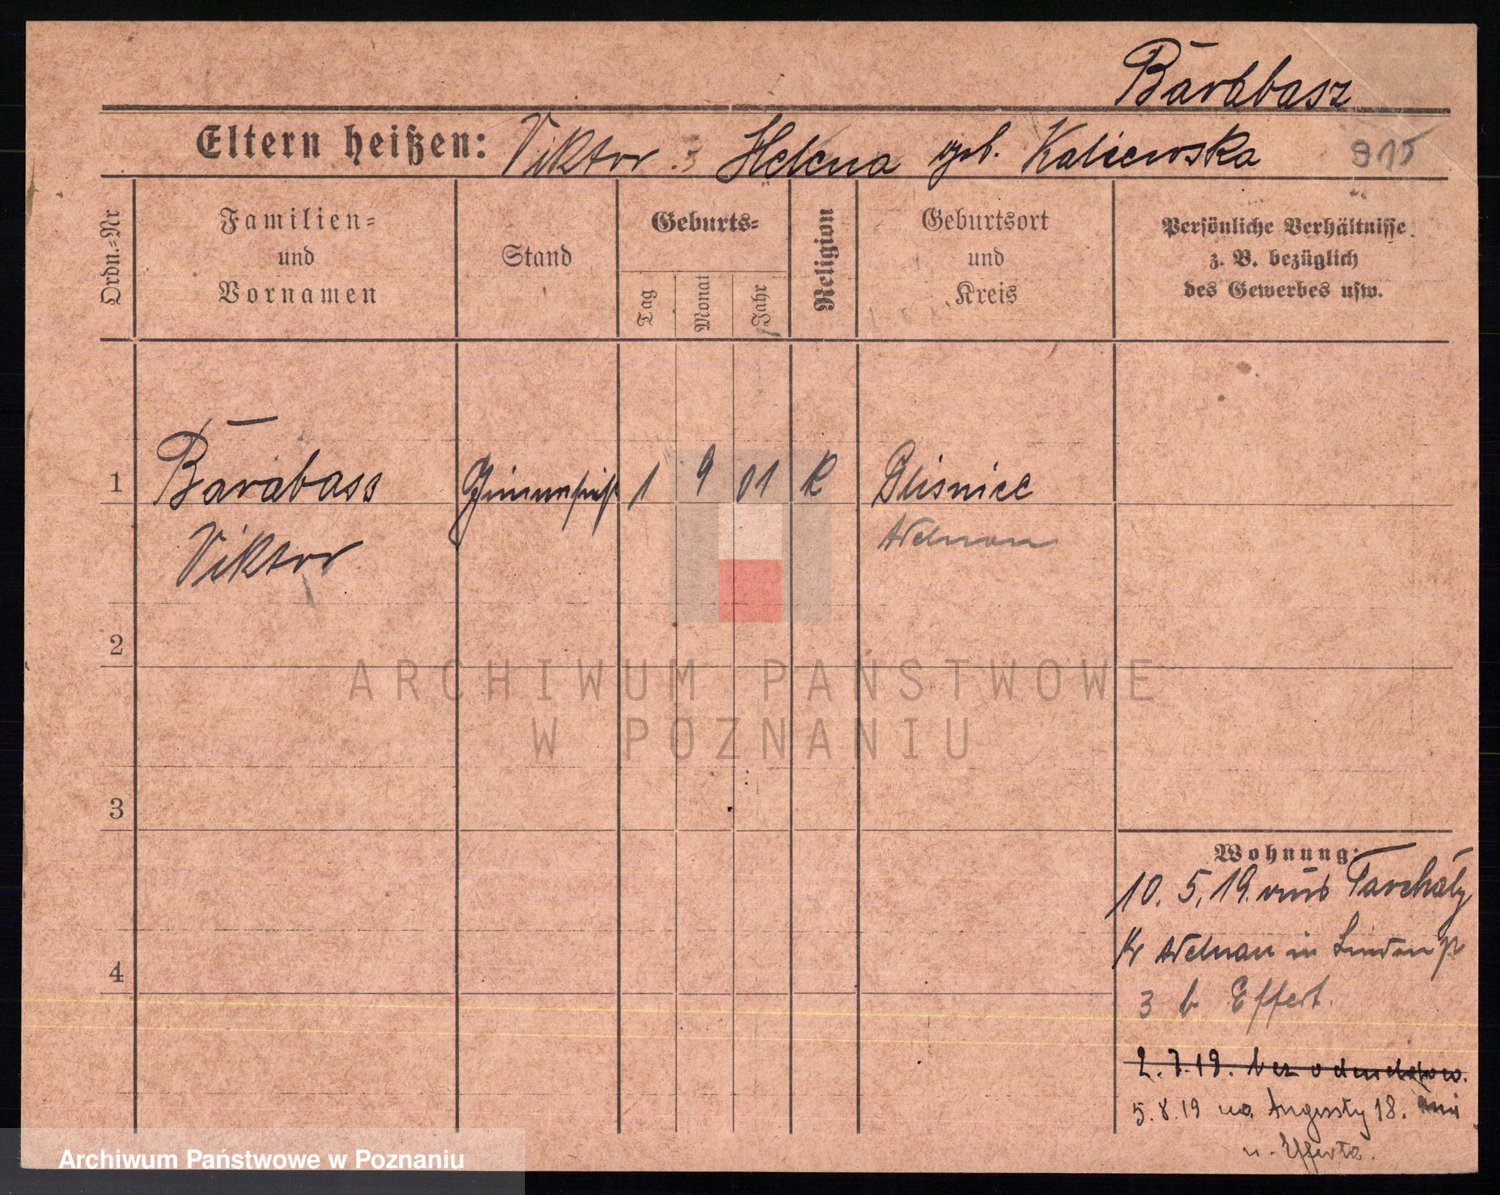 Barabasz
Eltern heißen: Viktor Helena geb. Kaliewska 915
Ordn.-Nr
Familien-
und
Vornamen
Stand
Geburts-
Tag
Monat
Jahr
Religion
Geburtsort
und
Kreis
Persönliche Verhältnisse
z. B. bezüglich
des Gewerbes usw.
1 Barabass 1 9 01 K
Viktor Adelnau
2
3
4
Wohnung:
10. 5. 19. aus Tarchaly
Kr Adelnau in
3 b Effert.
2. 7. 19. bez
5. 8. 19 na 18.
u.
ARCHIWUM PAŃSTWOWE
W POZNANIU
Archiwum Państwowe w Poznaniu